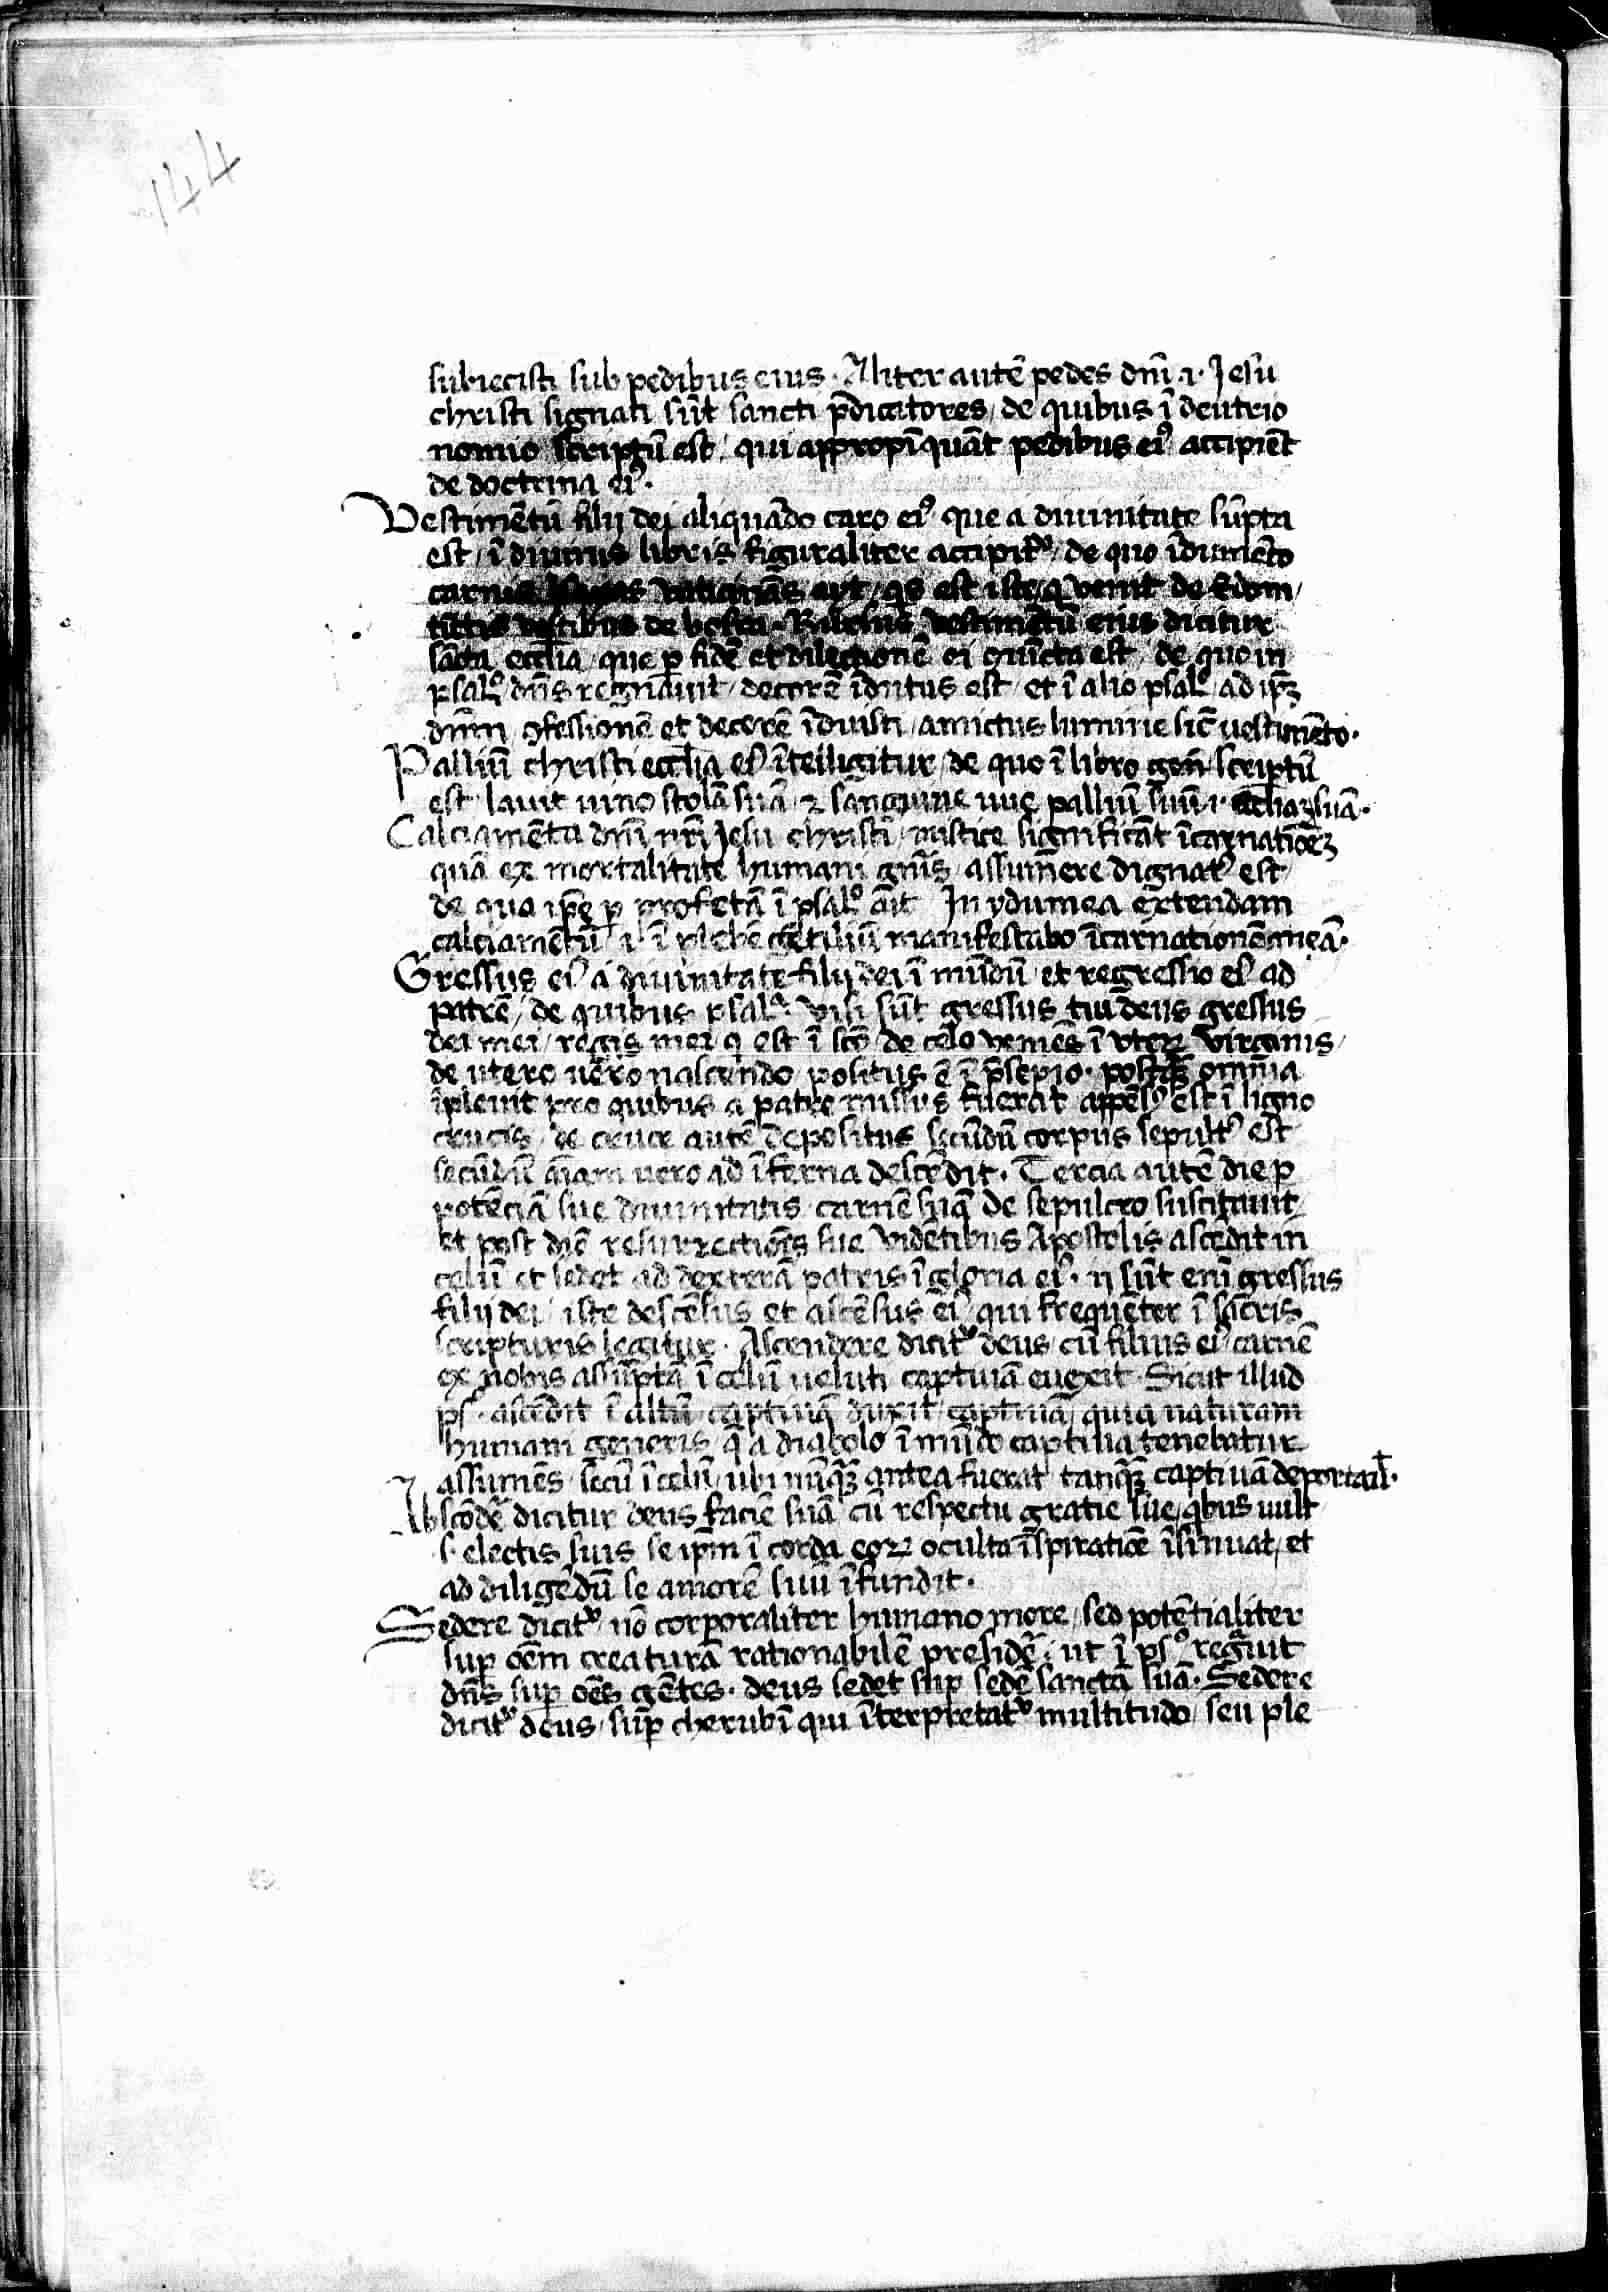 144
subiecisti sub pedibus eius. Aliter autē pedes dnī .i. Jesū
christi signati sūt sancti p̄dicatores / de quibus ī deutrio
nomio scriptū est / qui appropīquāt pedibus eiꝰ accipiēt
de doctrina eiꝰ.
Vestimētū filij dei aliquādo caro eiꝰ que a diuinitate sūpta
est / ī diuinis libris figuraliter accipit᷑ / de quo īdumēto
carnis vaticināS ayt / qs est iste / q venit de Edom /
tīctis vestibus de bosra. Rursus vestimētū eius dicitur
sācta ecclīa que ꝑ fidē et dilectionē ei ꝯiūcta est / de quo in
psalº dn̄s regnauit / decorē īdutus est / et ī alio psalº ad ip̄ꝫ
dnm̄ ꝯfessionē et decorē īduisti / amictus lumine sic̄ uestimēto.
Palliū christi ecclīa eiꝰ ītelligitur / de quo ī libro gen̄ scriptū
est lauit uino stolā suā / ⁊ sanguine uue palliū suū .i. ecclīaꝫ suā.
Calciamēta dnī nrī Jesu christi / mistice significāt īcarnatioēꝫ
quā ex mortalitate humani gnīs / assumere dignatꝰ est /
de qua ip̄e ꝑ profetā ī psalº āit In ydumea extendam
calciamētū .i. ī plebē gētiliū manifestabo īcarnationē meā.
Gressus eiꝰ a diuinitate filij dei ī mūdū / et regressio eiꝰ ad
patrē / de quibus psalº. Visi sūt gressus tui deus gressus
dei mei / regis mei q est ī scō / de celo veniēs ī vterꝫ virginis /
de utero uēro nascendo positus ē ī p̄sepio. postq̄ꝫ omnia
īpleuit pro quibus a patre missus fuerat appēsꝰ est ī ligno
crucis / de cruce autē depositus secūdū corpus sepultꝰ est
secūdū aīam uero ad īferna descēdit. Tercia autē die ꝑ
potēciā sue diuinitatis carnē suā de sepulcro suscitauit /
et post diē resurrectiōis sue vidētibus Apostolis ascēdit in
celū et sedet ad dexterā patris ī gloria eiꝰ. ij sūt enī gressus
filij dei / iste descēsus et ascēsus eiꝰ / qui frequēter ī sacris
scripturis legitur. Ascendere dicit᷑ deus / cū filius eiꝰ carnē
ex nobis assūptā ī celū ueluti captiuā euexit. Sicut illud
ps. ascēdit ī altū captiuā duxit captiuā / quia naturam
humani generis q̄ a diabolo ī mūdo captiua tenebatur
assumēs / secū ī celū / ubi nūq̄ꝫ antea fuerat tanq̄ꝫ captiuā deportauit.
Abscōdē dicitur deus faciē suā cū respectu gratie sue / qbus uult
s. electis suis se ip̄m ī corda eoꝝ oculta īspiratiōe īsinuat / et
ad diligēdū se amorē suū īfundit.
Sedere dicit᷑ nō corporaliter humano more / sed potētialiter
suꝑ oēm creaturā rationabilē presidē. ut ī psº regnauit
dn̄s suꝑ oēs gētes. deus sedet suꝑ sedē sanctā suā. Sedere
dicit᷑ deus / suꝑ cherubī qui īterpretat᷑ multitudo / seu ple